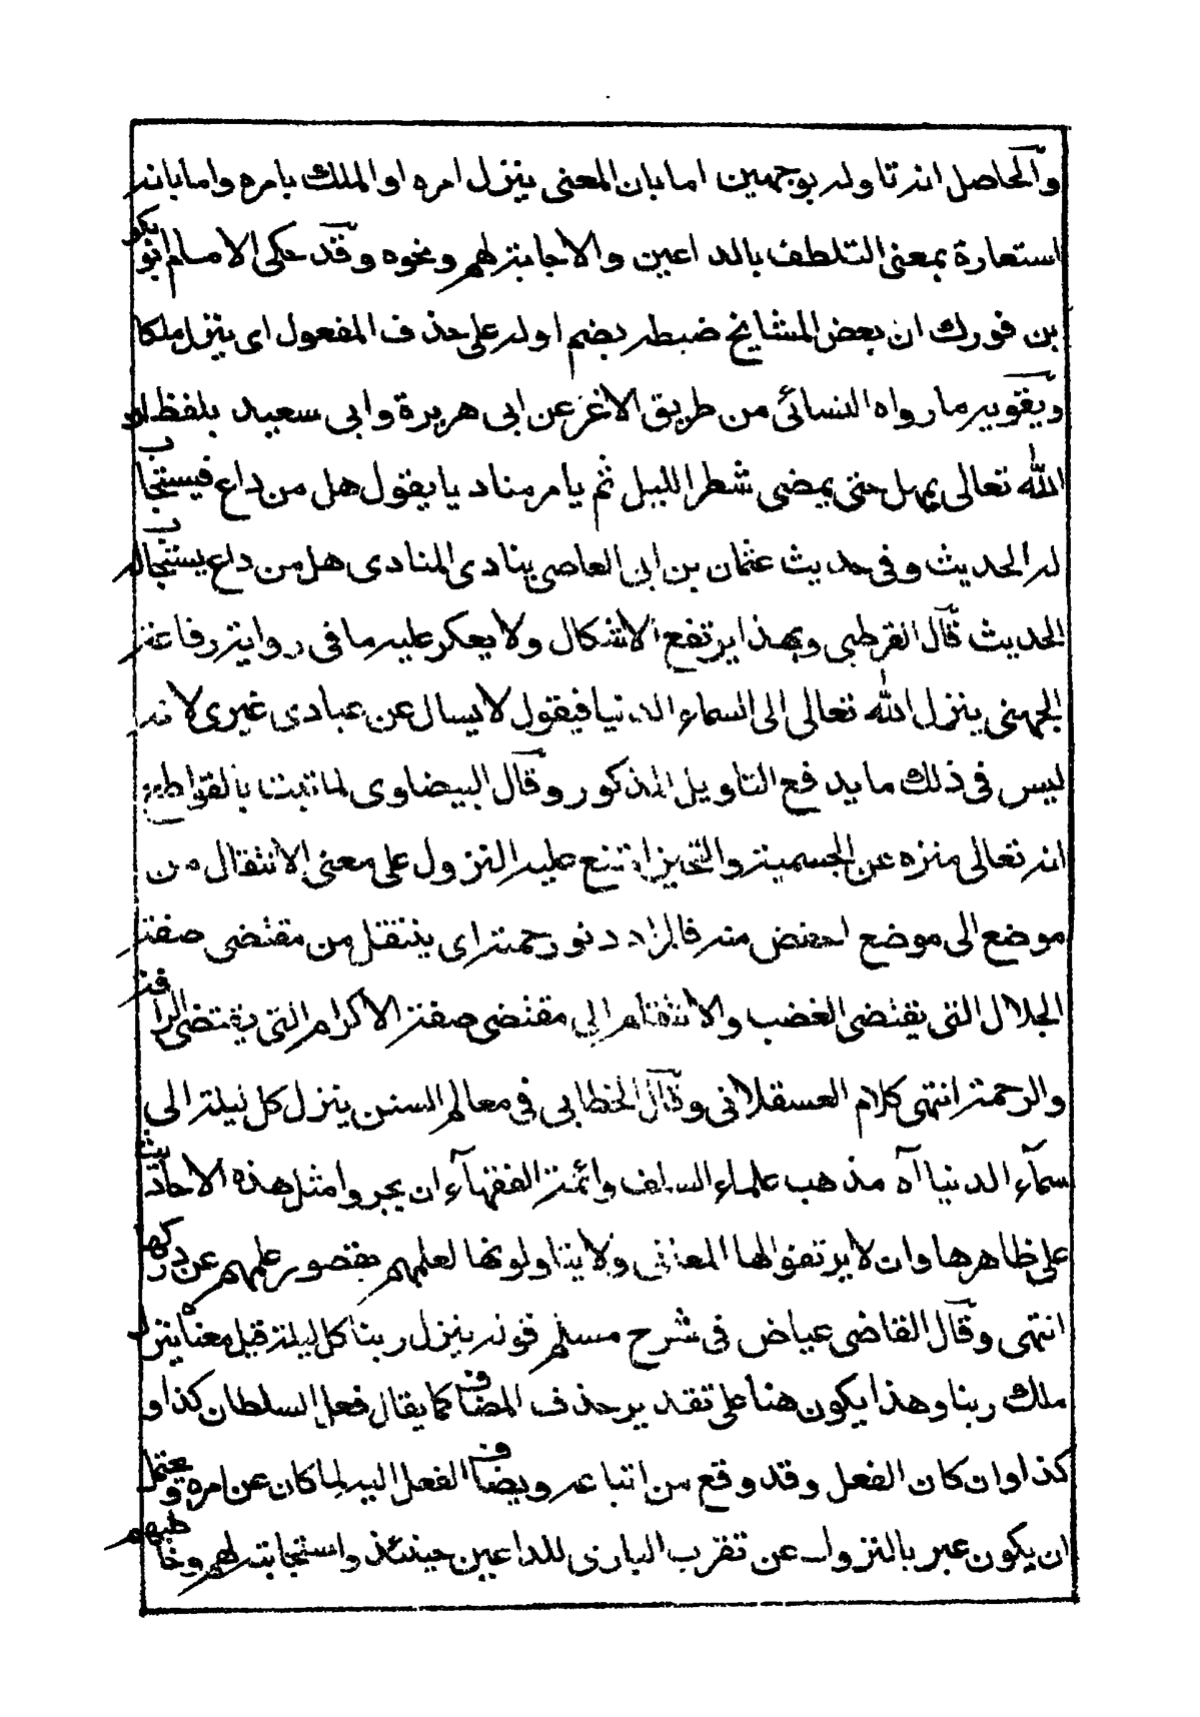 والحاصل انه تاوله بوجهين اما بان المعنى ينزل امره او الملك بامره واما بانه
استعارة بمعنى التلطف بالداعين والاجابة لهم ونحوه وقد حكى الامام ابو بكر
بن فورك ان بعض المشايخ ضبطه بضم اوله على حذف المفعول اى ينزل ملكا
ويقويه ما رواه النسائى من طريق الاغر عن ابى هريرة وابى سعيد بلفظ ان
الله تعالى يمهل حتى يمضى شطر الليل ثم يامر مناديا يقول هل من داع فيستجاب
له الحديث وفى حديث عثمان بن ابى العاصى ينادى المنادى هل من داع يستجاب له
الحديث قال القرطبى وبهذا يرتفع الاشكال ولا يعكر عليه ما فى رواية رفاعة
الجهنى ينزل الله تعالى الى السماء الدنيا فيقول لا يسال عن عبادى غيرى لانه
ليس فى ذلك ما يدفع التاويل المذكور وقال البيضاوى لما ثبت بالقواطع
انه تعالى منزه عن الجسمية والتحيز امتنع عليه النزول على معنى الانتقال من
موضع الى موضع اخفض منه فالمراد دنو رحمته اى ينتقل من مقتضى صفة
الجلال التى تقتضى الغضب والانتقام الى مقتضى صفة الاكرام التى تقتضى الرافة
والرحمة انتهى كلام العسقلانى وقال الخطابى فى معالم السنن ينزل كل ليلة الى
سمآء الدنيا اه مذهب علماء السلف وائمة الفقهآء ان يجروا مثل هذه الاحاديث
على ظاهرها وان لا يرتغوا لها المعانى ولا يتاولونها لعلمهم بقصور علمهم عن دركها
انتهى وقال القاضى عياض فى شرح مسلم قوله ينزل ربنا كل ليلة قيل معناه ينزل
ملك ربنا وهذا يكون هنا على تقدير حذف المضاف كما يقال فعل السلطان كذا و
كذا وان كان الفعل وقد وقع من اتباعه ويضاف الفعل اليه لما كان عن امره ويحتمل
ان يكون عبر بالنزول عن تقرب البارى للداعين حينئذ واستجابته لهم وخاطبهم